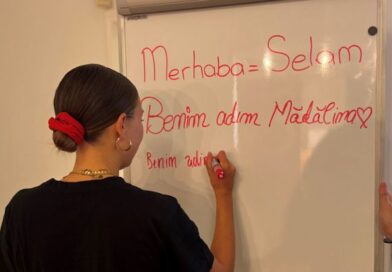 Merhaba = Selam
Benim adım Mădălina♡
Benim adım